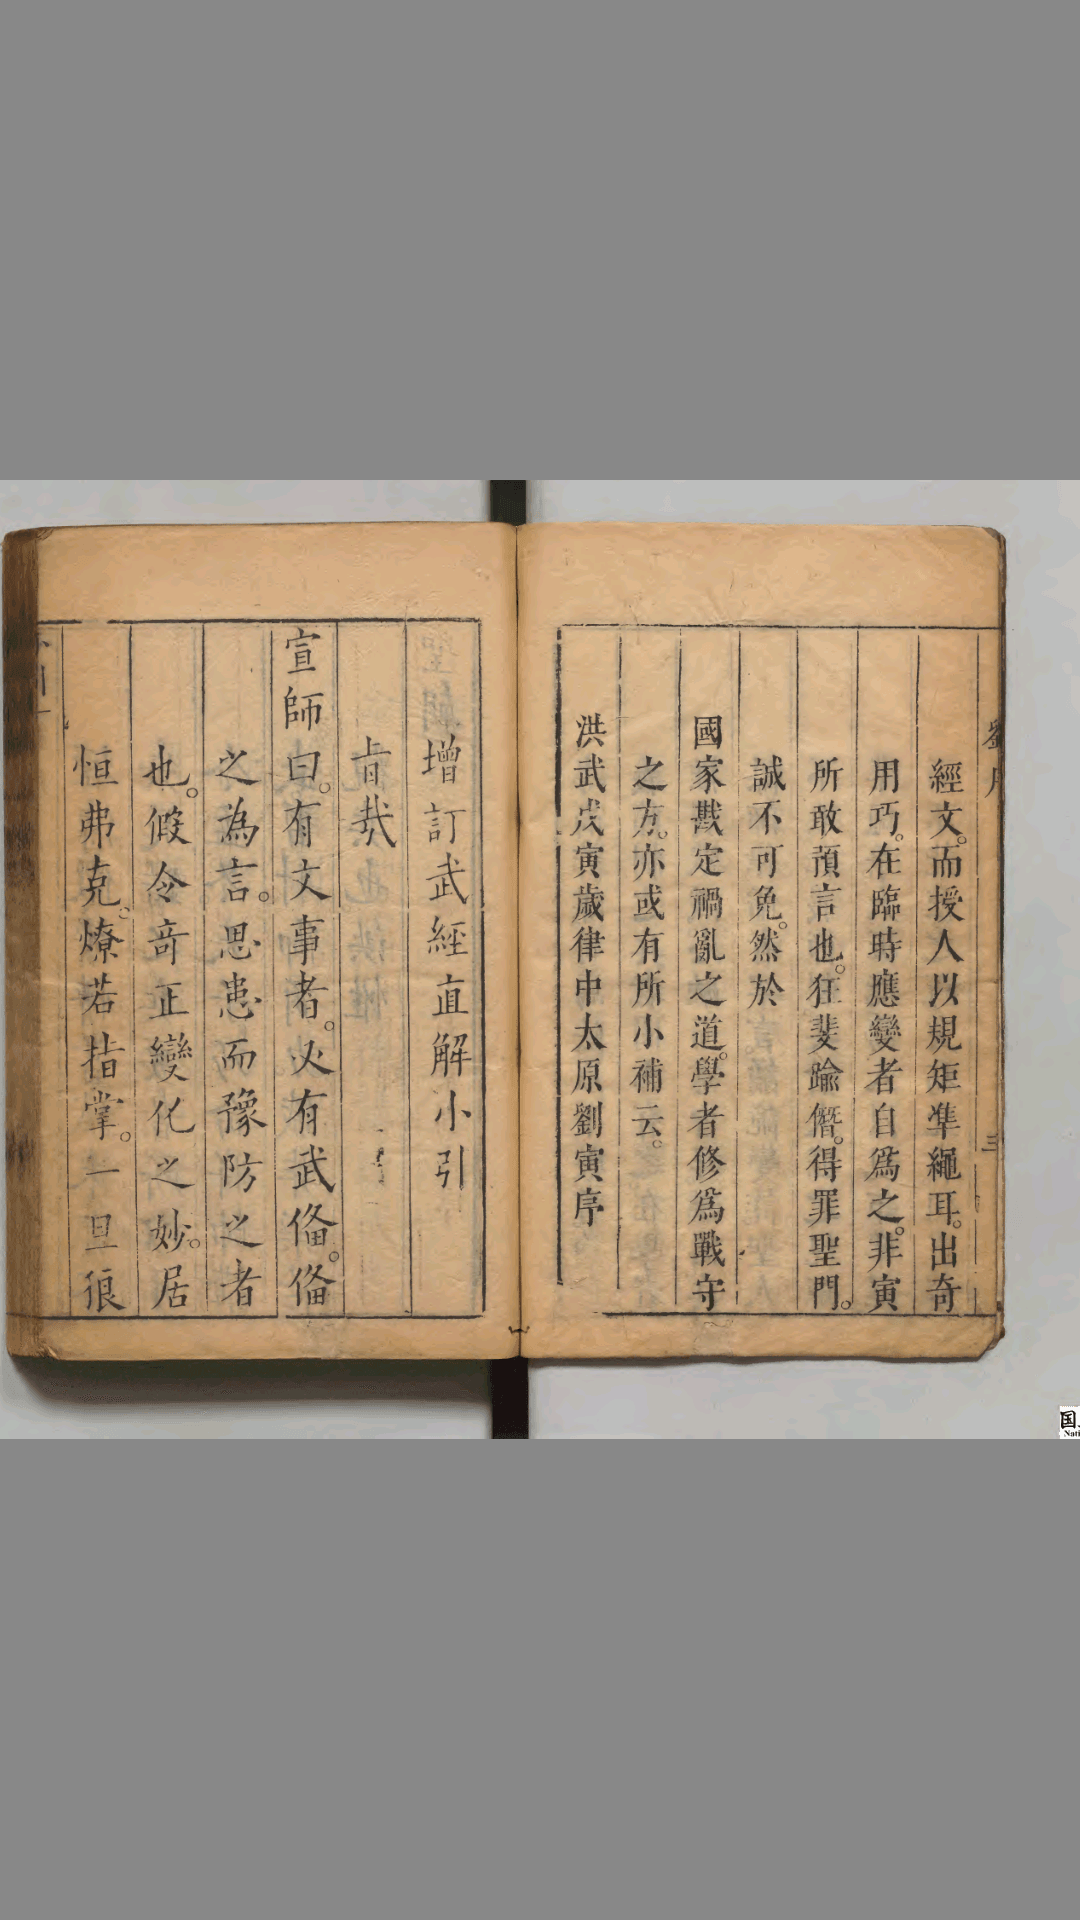 經文。而授人以規矩凖繩耳。出奇
用巧。在臨時應變者自爲之。非寅
所敢預言也。狂斐踰僭。得罪聖門。
誠不可免。然於
國家戡定禍亂之道。學者修爲戰守
之方。亦或有所小補云。
洪武戊寅歲律中太原劉寅序
增訂武經直解小引
旹哉
宣師曰。有文事者。必有武俻。俻
之為言。思患而豫防之者
也。假令竒正變化之妙。居
恒弗克燎若指掌。一旦狼
三
国
Nati